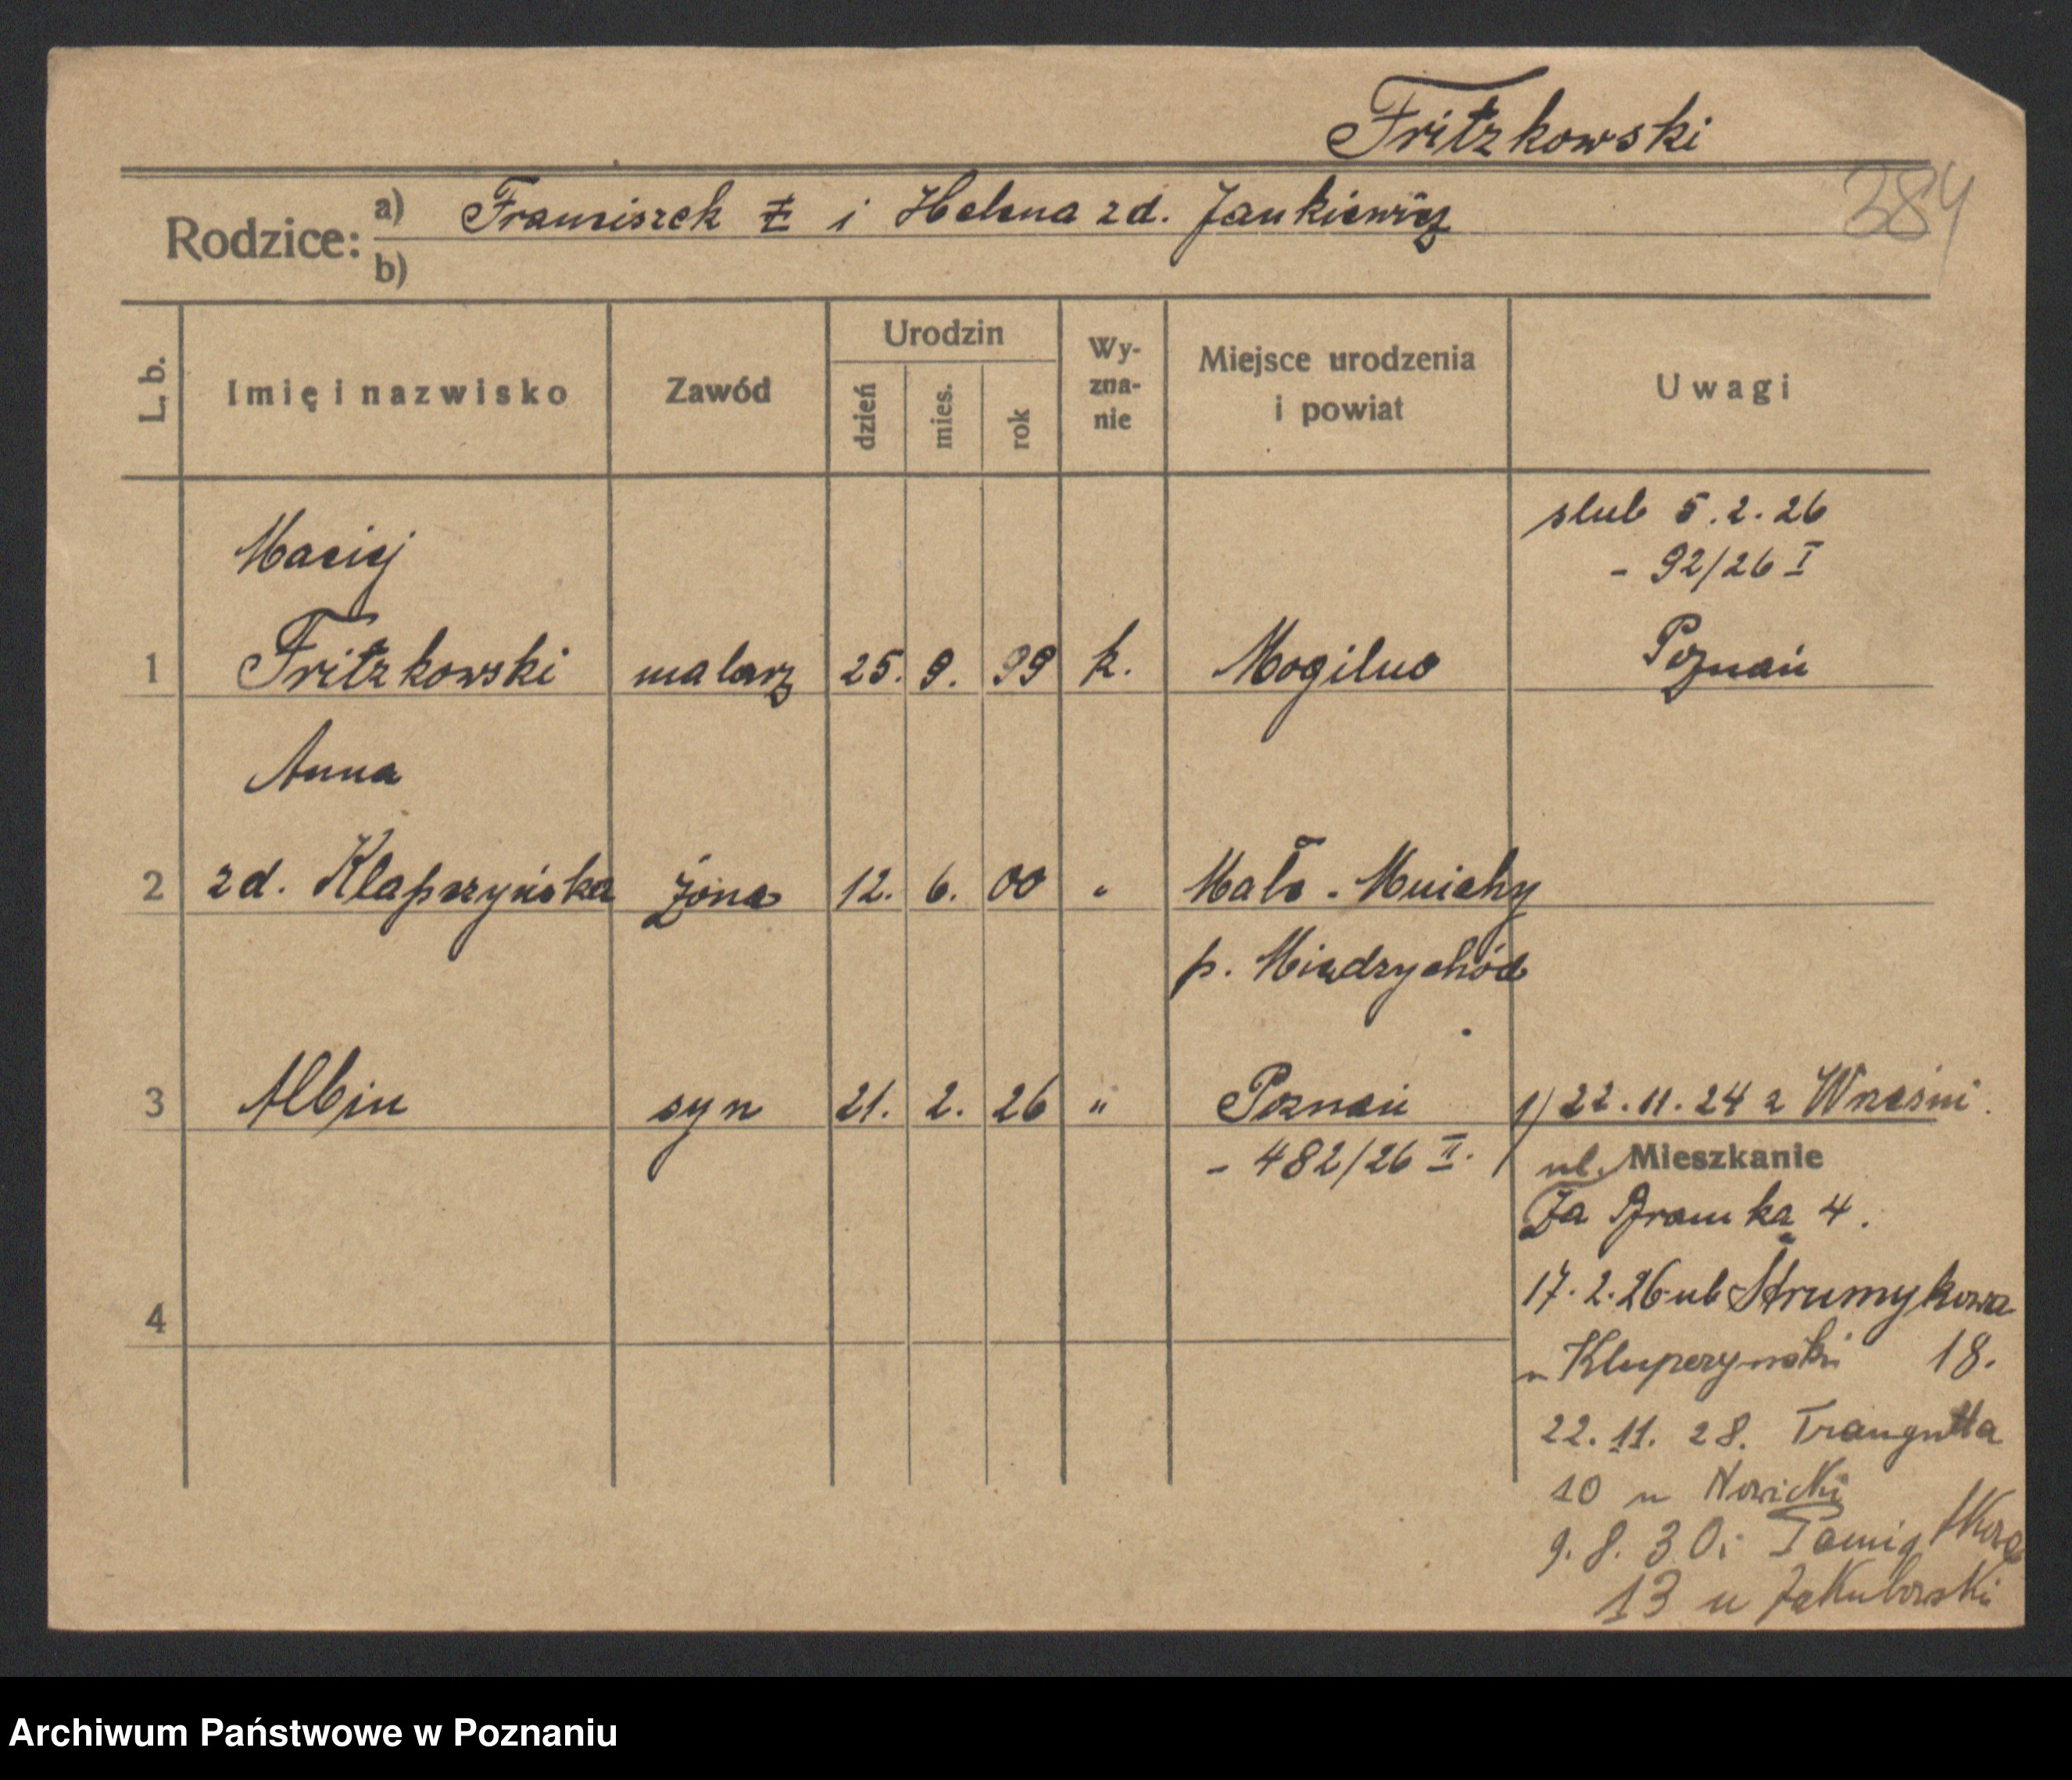 Fritzkowski
384
Rodzice: a) Franciszek i Helena zd. Jankiewicz
b)
L. b. Imię i nazwisko Zawód Urodzin dzień mies. rok Wy-zna-nie Miejsce urodzenia i powiat Uwagi
slub 5.2.26
- 92/26 I
Maciej
1 Fritzkowski malarz 25. 9. 99 k. Mogilno Poznań
Anna
2 zd. Klapczyńska żona 12. 6. 00 " Mało-Mnichy
p. Międzychód
3 Albin syn 21. 2. 26 " Poznań 1) 22.11.24 z Wrześni.
- 482/26 II.
ul. Mieszkanie
Za Bramką 4.
4
17.2.26 ul Strumykowa
u 18.
22.11.28. Traugutta
10 u Nowicki
9.8.30: Pamiątkowa
13 u Jakubowski
Archiwum Państwowe w Poznaniu